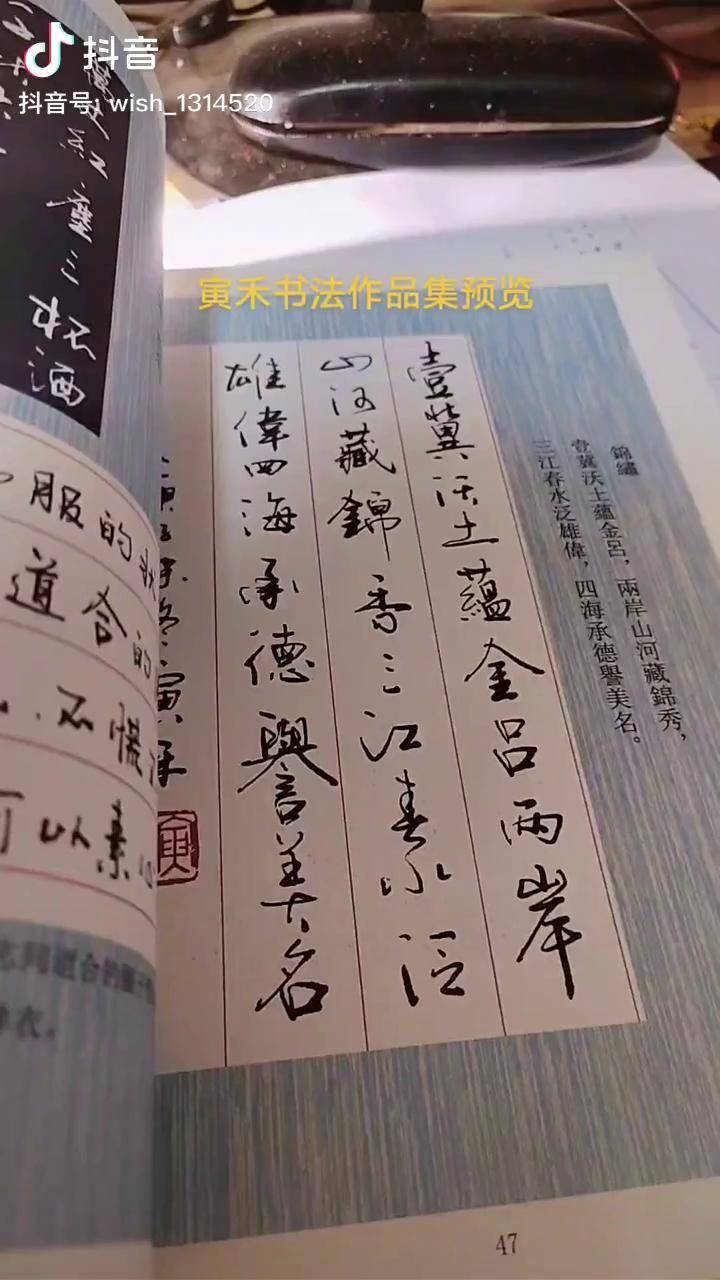 抖音
抖音号: wish_1314520
寅禾书法作品集预览
錦繡
壹冀沃土蘊金呂，兩岸山河藏錦秀，
三江春水泛雄偉，四海承德譽美名。
壹冀沃土蘊金呂兩岸
山河藏錦香三江春水泛
雄偉四海承德譽美名
寅
紅塵三杯酒
服的
道合的
不慌
可以素心
志同道合的
47